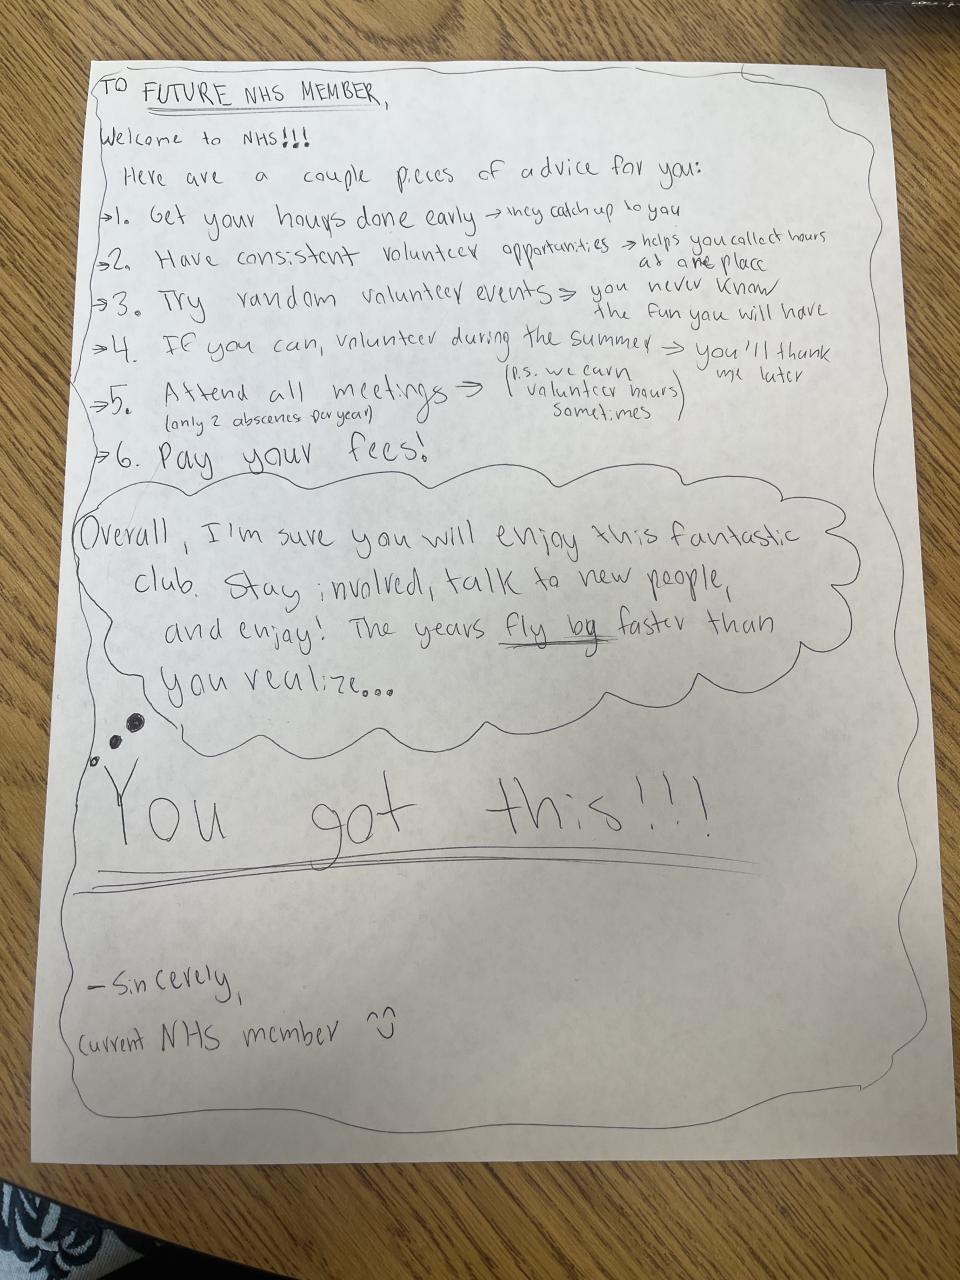 TO FUTURE NHS MEMBER,
Welcome to NHS!!!
Here are a couple pieces of advice for you:
→1. Get your hours done early → they catch up to you
→2. Have consistent volunteer opportunities → helps you collect hours
at one place
→3. Try random volunteer events → you never know
the fun you will have
→4. If you can, volunteer during the summer → you'll thank
me later
→5. Attend all meetings → (p.s. we earn
volunteer hours
sometimes)
(only 2 abscenes per year)
→6. Pay your fees!
Overall, I'm sure you will enjoy this fantastic
club. Stay involved, talk to new people,
and enjoy! The years fly by faster than
you realize...
You got this!!!
- Sincerely,
Current NHS member ^^